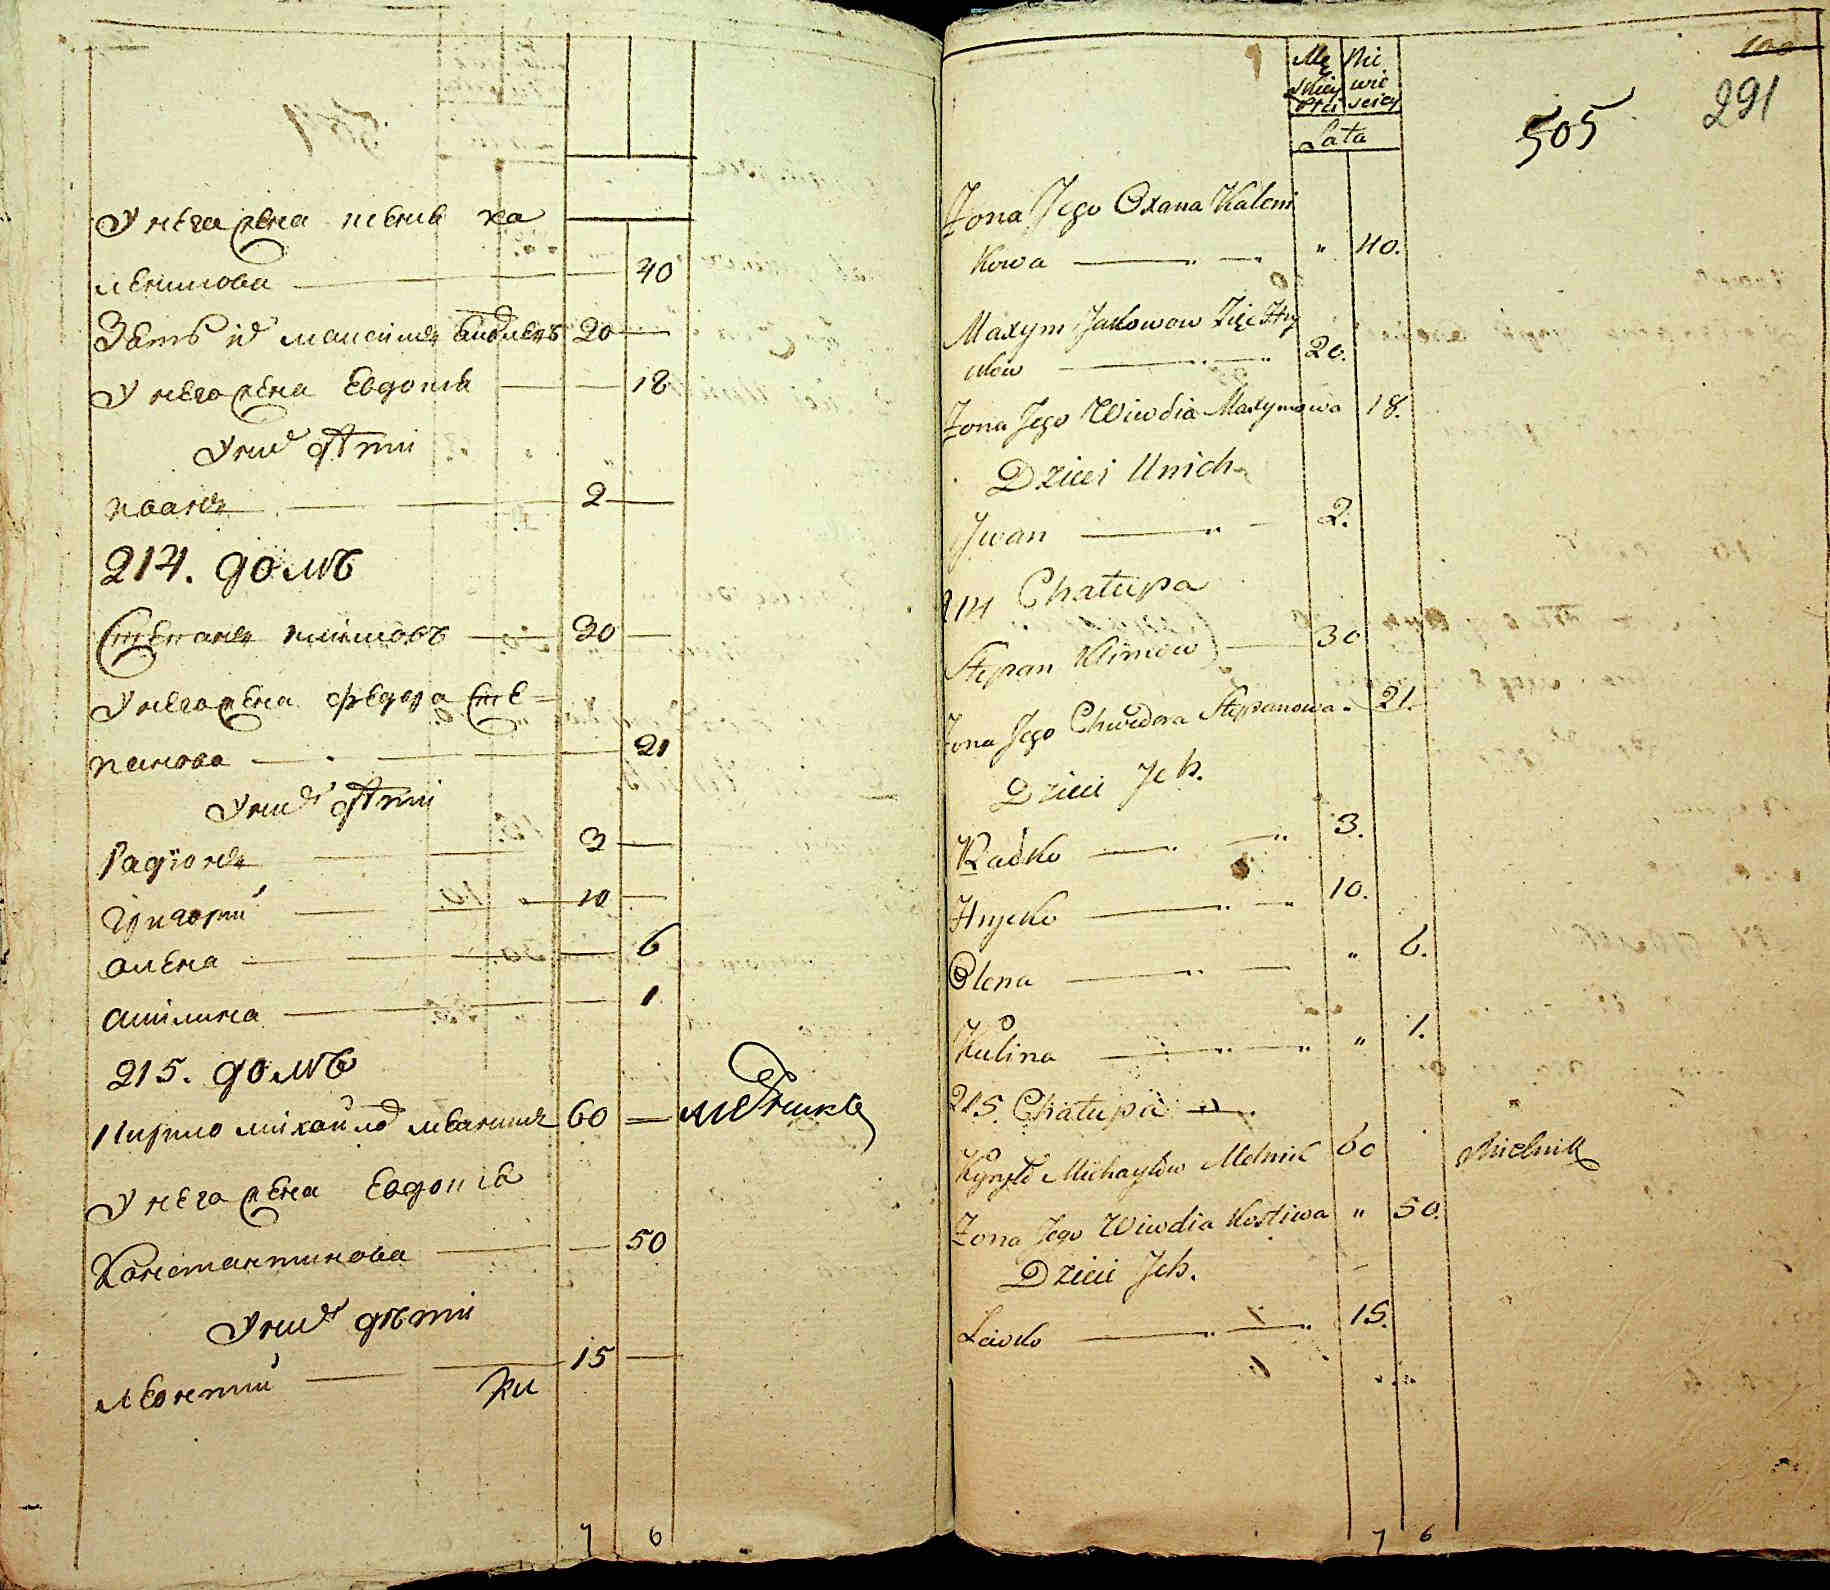 У него жена
40
Зать их маѯимъ 20
У него жена Евдокиа 18
У них дѣти
Иванъ 2
214. домъ
Стефанъ климовъ 30
У него жена федора Сте=
панова 21
У них дѣти
Радіонъ 3
Григорий 10
Олена 6
Акилина 1
215. домъ
Кирило михайлов 60 Мѣлникъ
У него жена Евдокиа
Константинова 50
У них дѣти
Леонтий 15
7 6
Mę Nie
skiey wie
Płci sciey
Lata
505
291
Żona Jego Oxana Kaleni
kowa „ 40.
Maxym Jakowow Zięć Ich
20.
Żona Jego Wiwdia Maxymowa 18.
Dzieci Unich
Jwan 2.
214 Chałupa
Stepan Klimow 30
Żona Jego Chwedora Stepanowa 21.
Dzieci Jch.
Radko 3.
Hryćko 10.
Olena „ 6.
Kulina „ 1.
215. Chałupa
Kyryło Michayłow Melnik 60 Mielnik
Żona Jego Wiwdia Kostiwa „ 50.
Dzieci Jch.
Lewko 15.
7 6